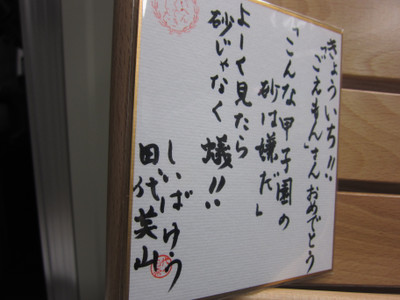 きょういち!!
「ごえもん」さん おめでとう
「こんな甲子園の
砂は嫌だ」
よーく見たら
砂じゃなく 蟻!!
しいばゆう
田代美山